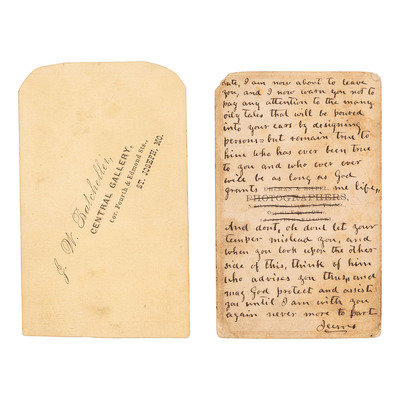 J. W. Batcheller,
CENTRAL GALLERY,
Cor. Fourth & Edmond Sts.,
ST. JOSEPH, MO.
I am now about to leave
you, and I now warn you not to
pay any attention to the many
oily tales that will be poured
into your ears by designing
persons but remain true to
him who has ever been true
to you and who ever ever
will be as long as God
grants me life,
PHOTOGRAPHERS,
And dont, oh dont let your
temper mislead you, and
when you look upon the other
side of this, think of him
who advises you thus, and
may God protect and assist
you until I am with you
again never more to part